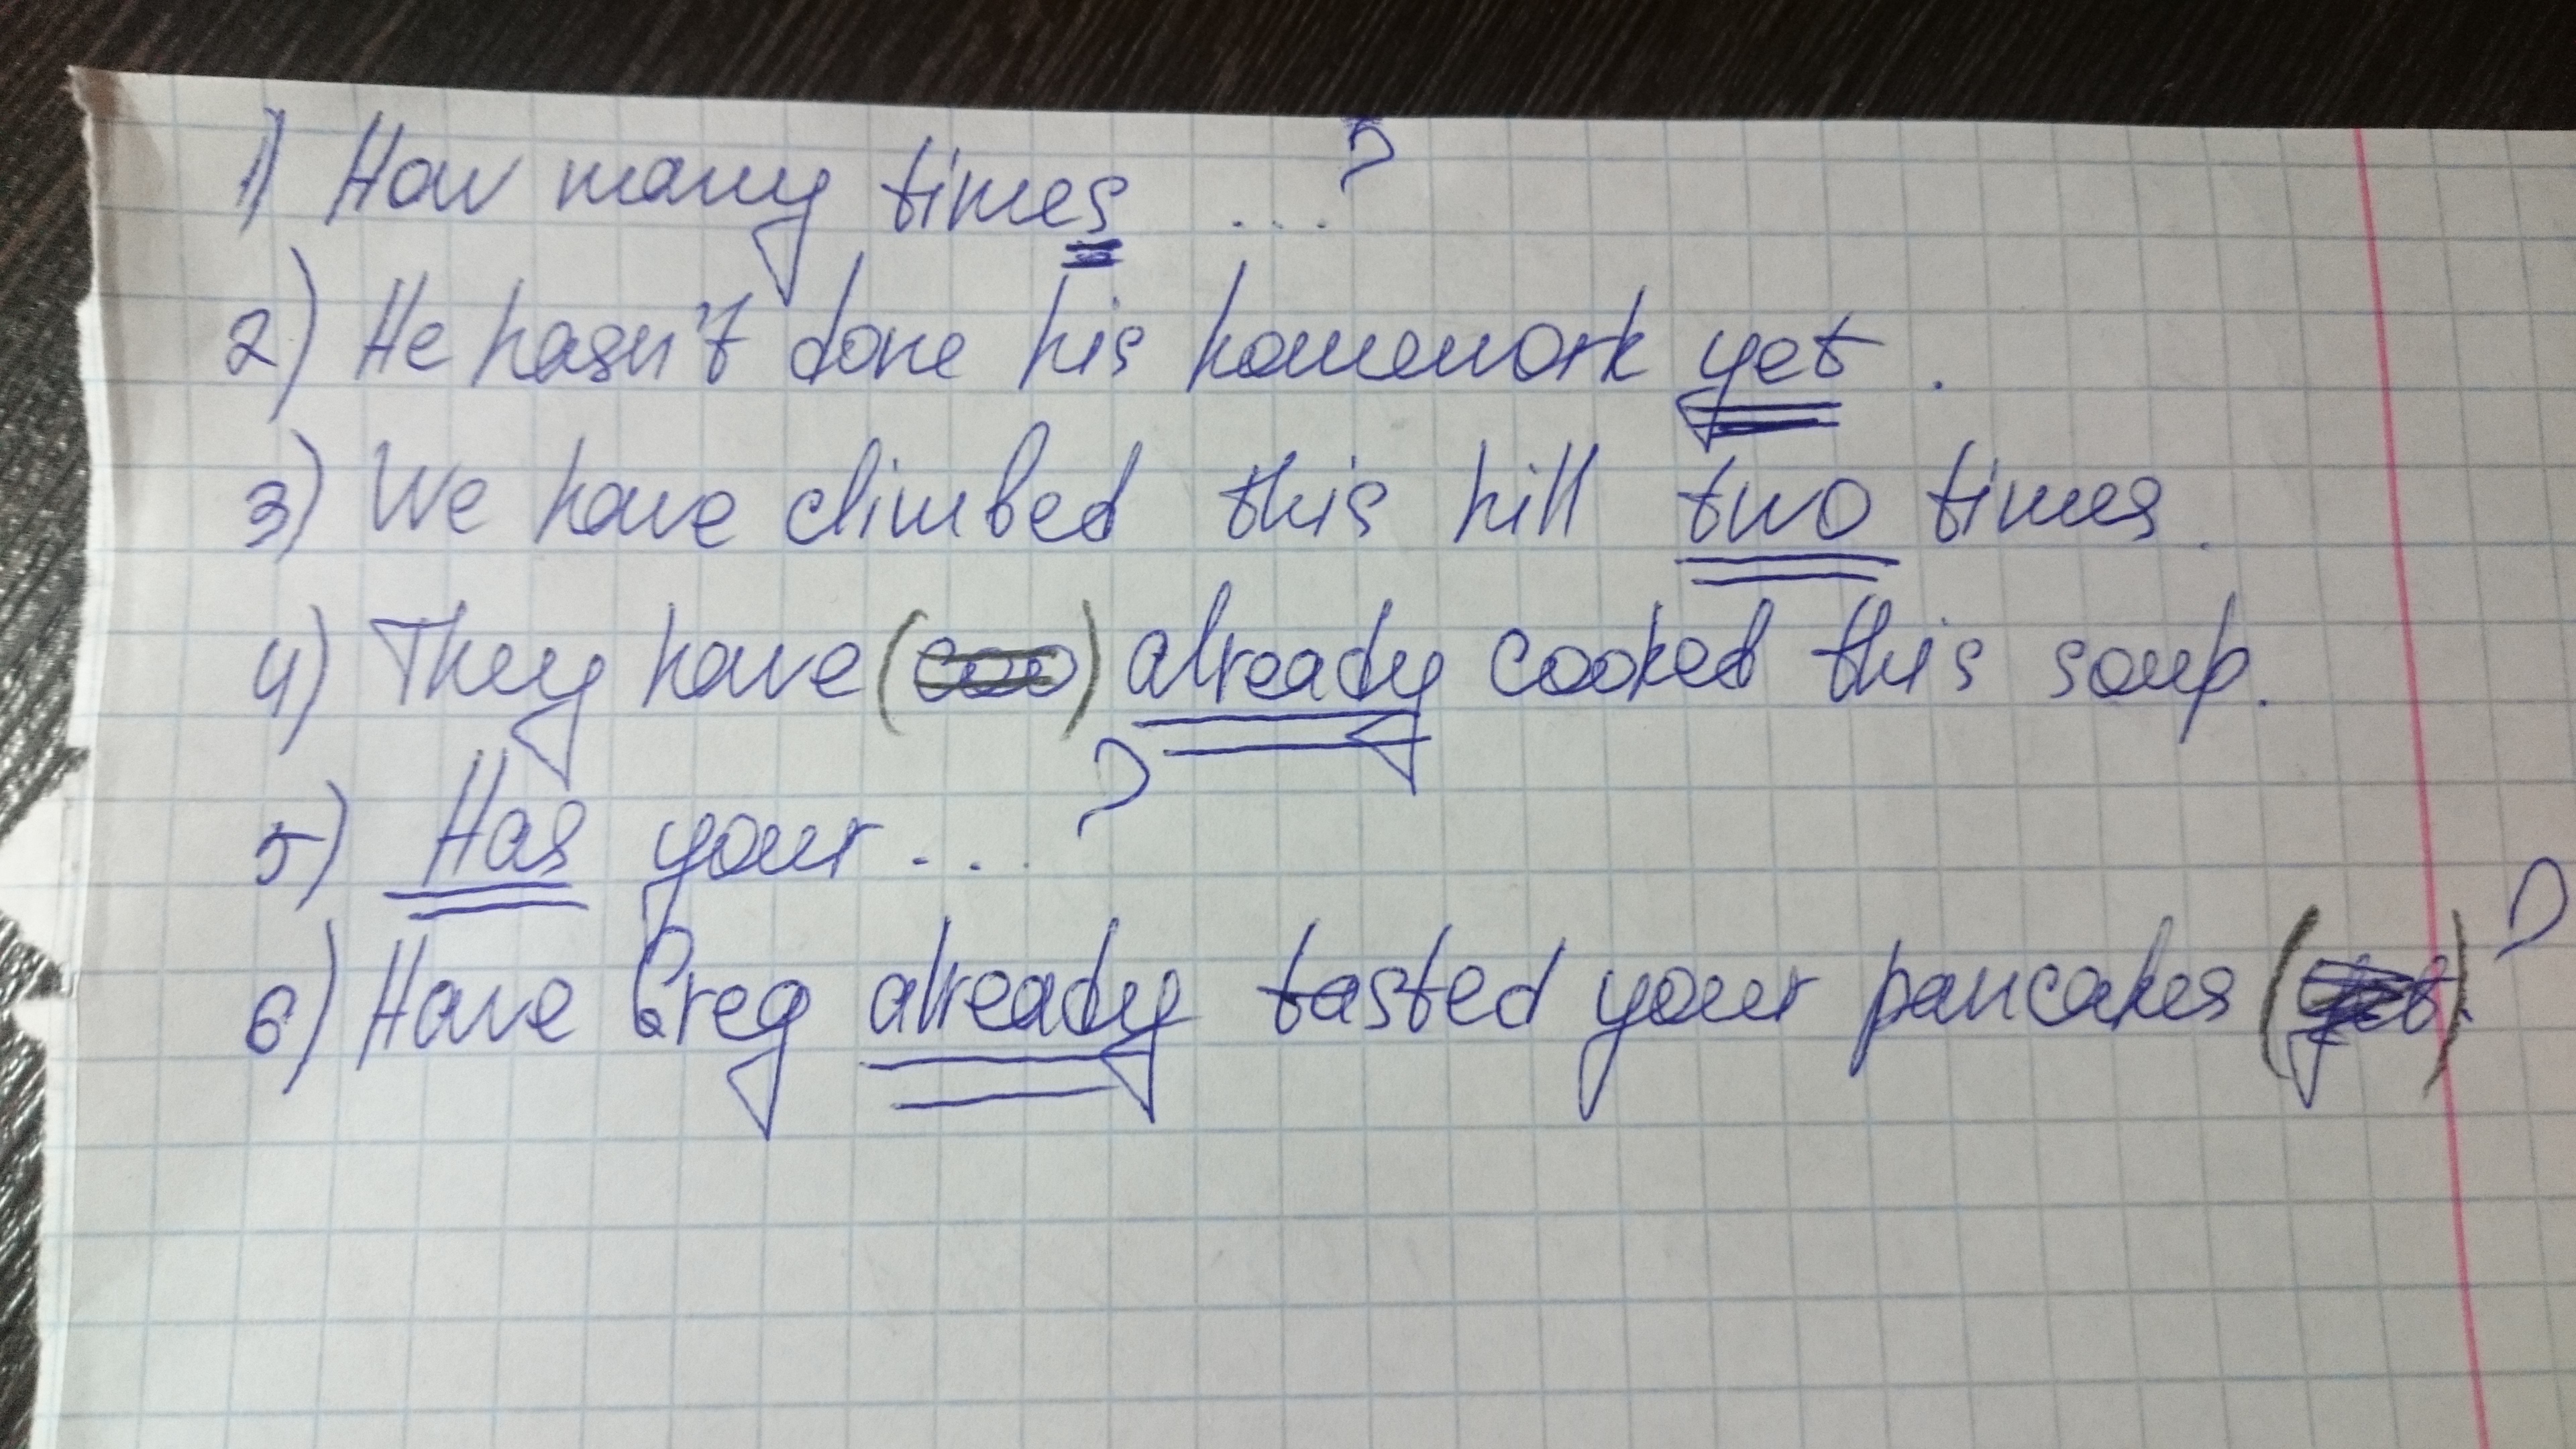 1) How many times ...?
2) He hasn't done his homework yet.
3) We have climbed this hill two times.
4) They have (coo) already cooked this soup.
5) Has your ...?
6) Have Greg already tasted your pancakes (yet)?